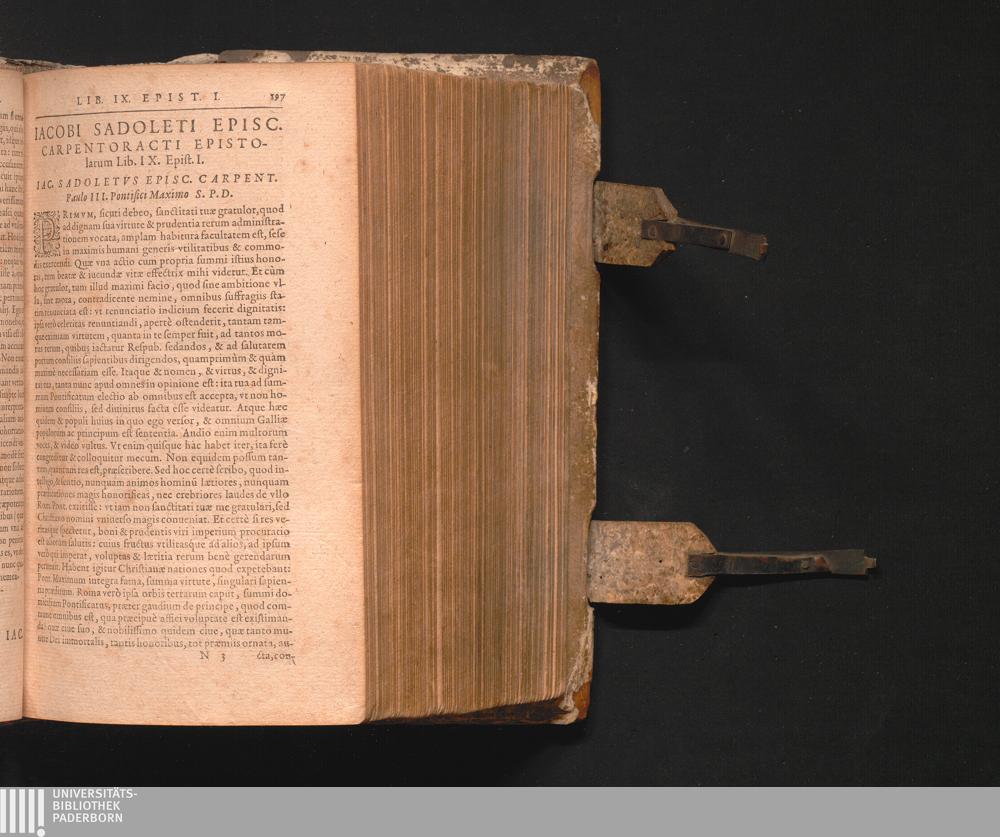 LIB. IX. EPIST. I. 197
IACOBI SADOLETI EPISC.
CARPENTORACTI EPISTO-
larum Lib. IX. Epiſt. I.
IAC. SADOLETVS EPISC. CARPENT.
Paulo III. Pontifici Maximo S. P. D.
PRIMVM, ſicuti debeo, ſanctitati tuæ gratulor, quod
ad dignam ſua virtute & prudentia rerum adminiſtra-
tionem vocata, amplam habitura facultatem eſt, ſeſe
in maximis humani generis vtilitatibus & commo-
dis exercendi. Quæ vna actio cum propria ſummi iſtius hono-
ris, tum beatæ & iucundæ vitæ effectrix mihi videtur. Et cùm
hoc gratulor, tum illud maximi facio, quod ſine ambitione vl-
la, ſine mora, contradicente nemine, omnibus ſuffragiis ſta-
tim renunciata eſt: vt renunciatio indicium fecerit dignitatis:
ipſa verò celeritas renuntiandi, apertè oſtenderit, tantam tam-
que eximiam virtutem, quanta in te ſemper fuit, ad tantos mo-
tus rerum, quibus iactatur Reſpub. ſedandos, & ad ſalutarem
portum conſiliis ſapientibus dirigendos, quamprimùm & quàm
maximè neceſſariam eſſe. Itaque & nomen, & virtus, & digni-
tas tua, tanta nunc apud omnes in opinione eſt: ita tua ad ſum-
mum Pontificatum electio ab omnibus eſt accepta, vt non ho-
minum conſiliis, ſed diuinitus facta eſſe videatur. Atque hæc
quidem & populi huius in quo ego verſor, & omnium Galliæ
populorum ac principum eſt ſententia. Audio enim multorum
voces, & video vultus. Vt enim quiſque hàc habet iter, ita ferè
congreditur & colloquitur mecum. Non equidem poſſum tan-
tum, quantum res eſt, præſcribere. Sed hoc certè ſcribo, quod in-
telligo, & ſentio, nunquam animos hominũ lætiores, nunquam
prædicationes magis honorificas, nec crebriores laudes de vllo
Rom. Pont. extitiſſe: vt iam non ſanctitati tuæ me gratulari, ſed
Chriſtiano nomini vniuerſo magis conueniat. Et certè ſi res ve-
ritasque ſpectetur, boni & prudentis viri imperium procuratio
eſt aliorum ſalutis: cuius fructus vtilitasque ad alios, ad ipſum
verò qui imperat, voluptas & lætitia rerum benè gerendarum
pertinet. Habent igitur Chriſtianæ nationes quod expetebant:
Pont. Maximum integra fama, ſumma virtute, ſingulari ſapien-
tia præditum. Roma verò ipſa orbis terrarum caput, ſummi do-
micilium Pontificatus, præter gaudium de principe, quod com-
mune omnibus eſt, qua præcipuè affici voluptate eſt exiſtiman-
da? quæ ciue ſuo, & nobiliſſimo quidem ciue, quæ tanto mu-
nere Dei immortalis, tantis honoribus, tot præmiis ornata, au-
N 3 cta, con-
IAC
UNIVERSITÄTS-
BIBLIOTHEK
PADERBORN